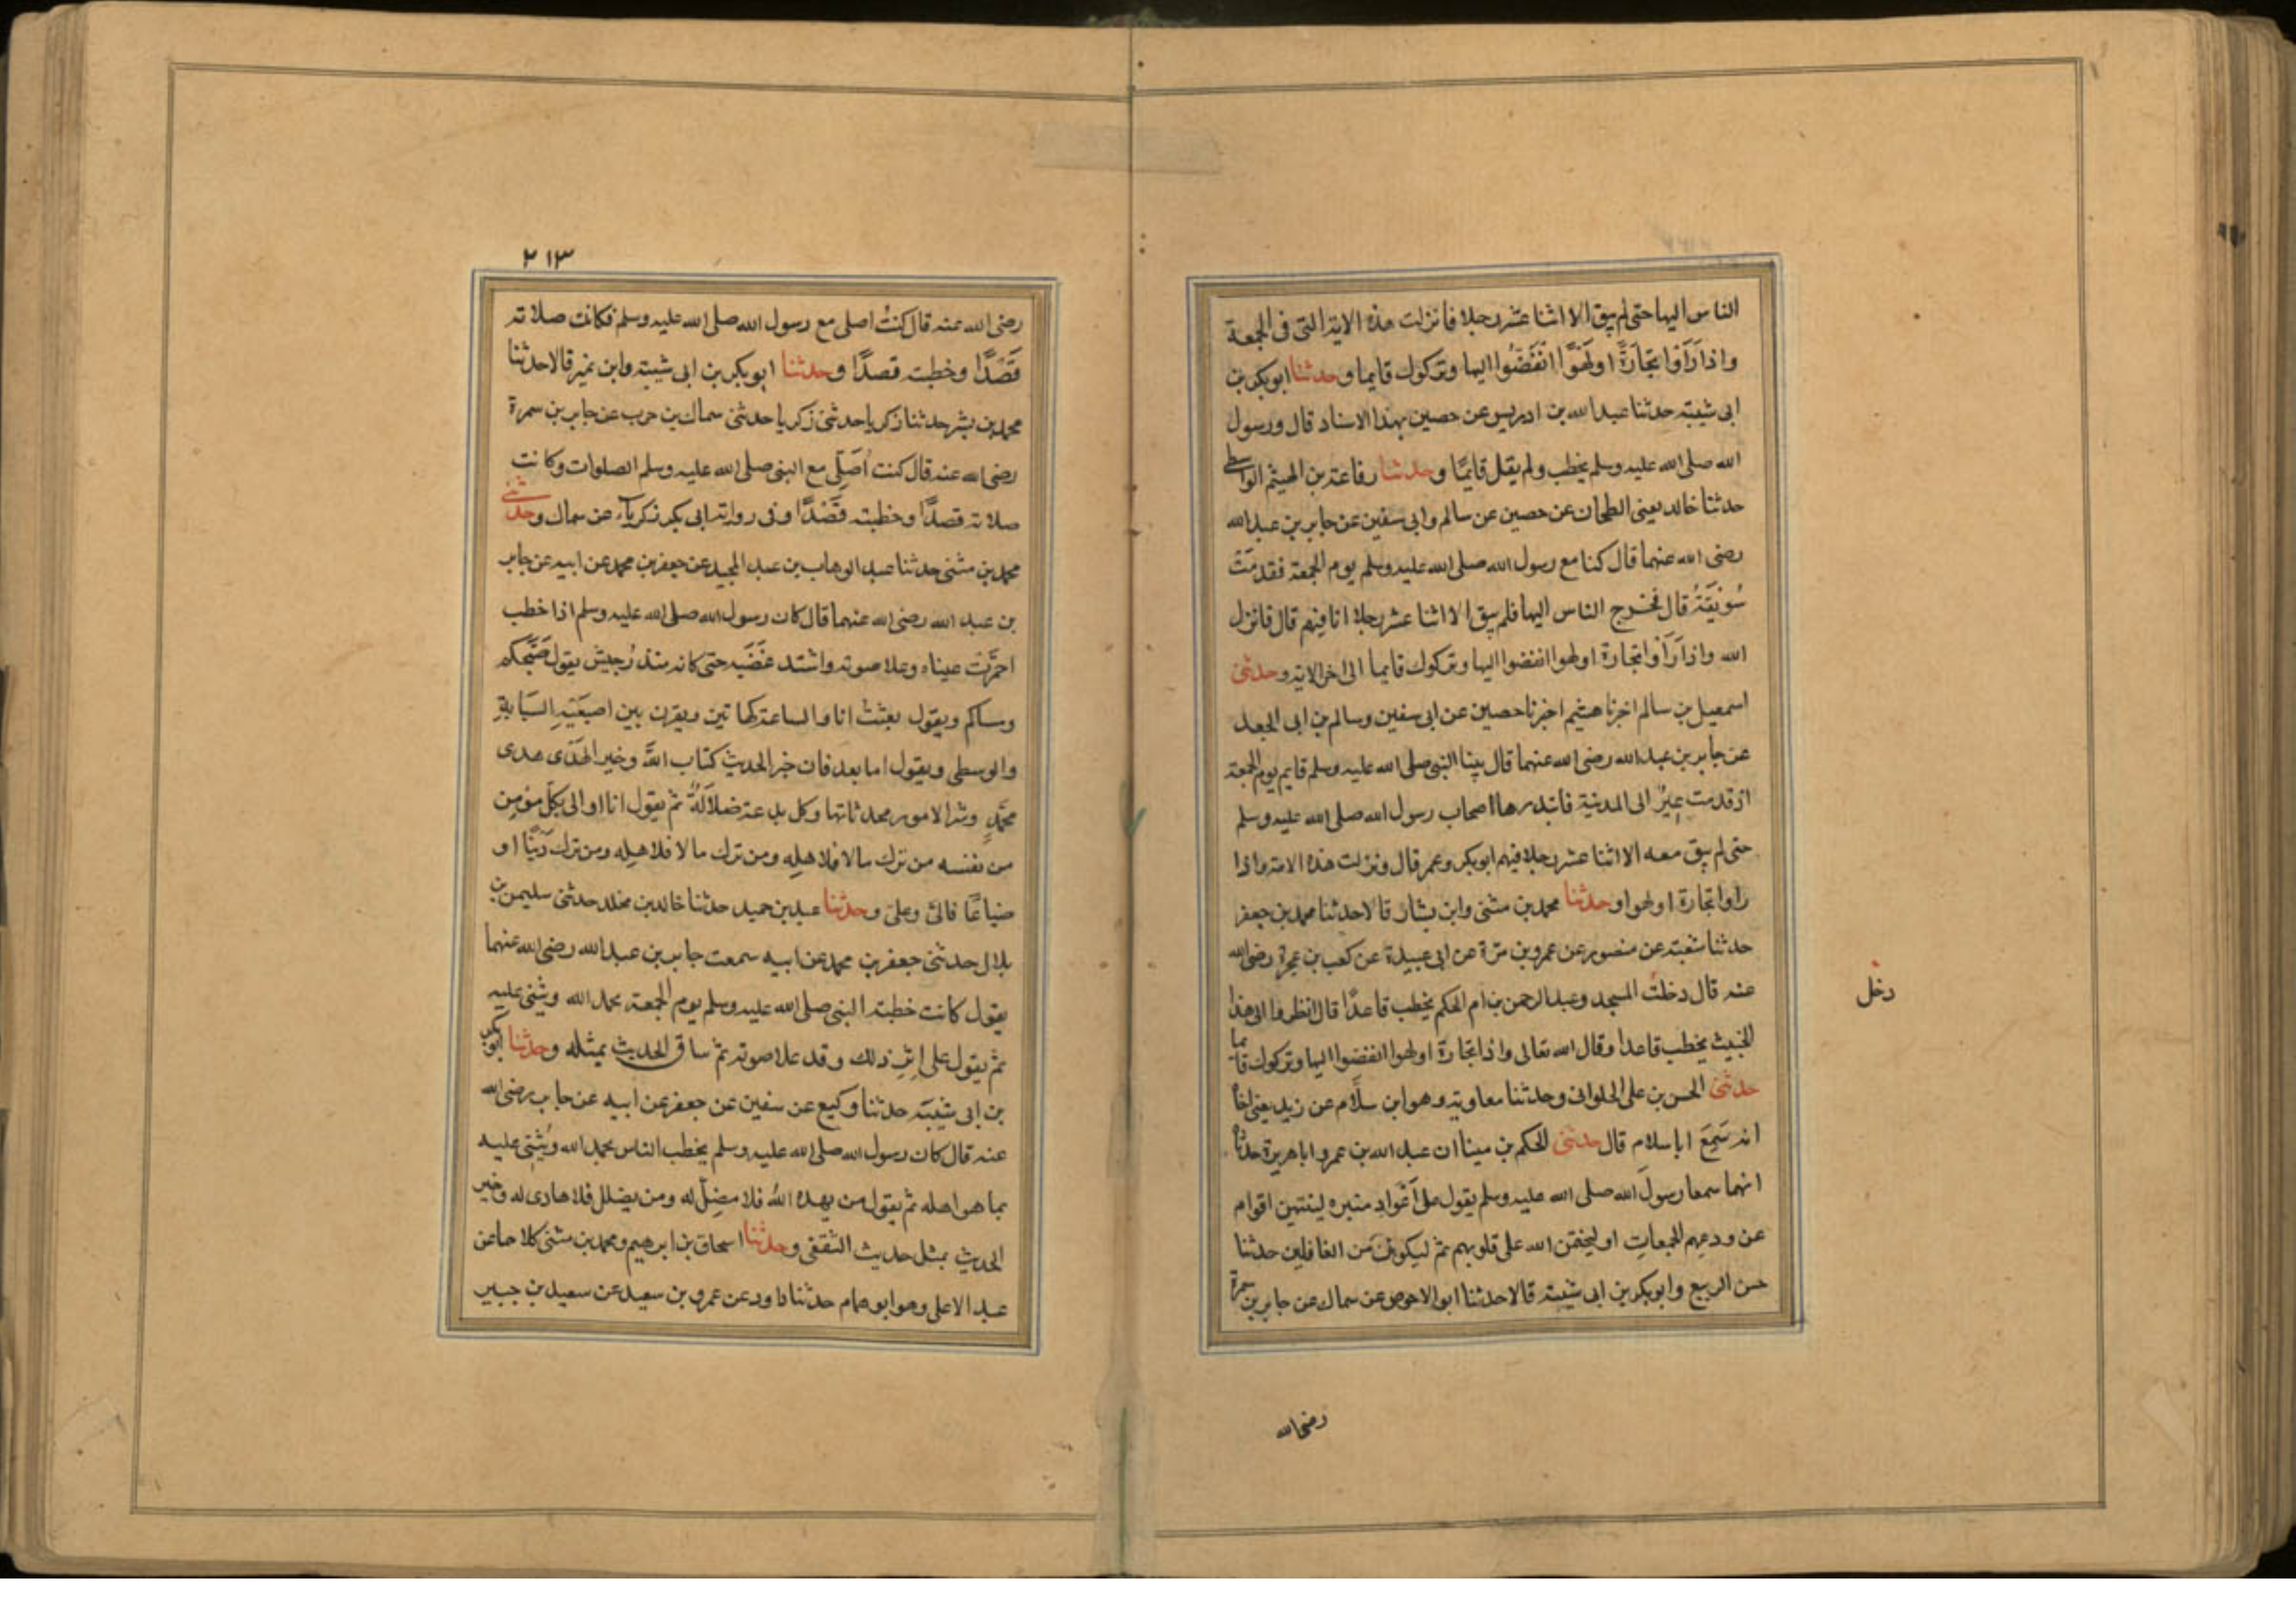 الناس اليها حتى لم يبق الا اثنا عشر رجلا فانزلت هذه الاية التى فى الجمعة
واذا رَاَوْا تجَارَةً او لَهْوًا انْفَضُّوا اليها وتركوك قايما وحدثنا ابو بكر بن
ابى شيبة حدثنا عبد الله بن ادريس عن حصين بهذا الاسناد قال ورسول
الله صلى الله عليه وسلم يخطب ولم يقل قايمًا وحدثنا رفاعة بن الهيثم الواسطى
حدثنا خالد يعنى الطحان عن حصين عن سالم وابى سفين عن جابر بن عبد الله
رضى الله عنهما قال كنا مع رسول الله صلى الله عليه وسلم يوم الجمعة فقدمَتْ
سُوَيْقَةٌ قال فخرج الناس اليها فلم يبق الا اثنا عشر رجلا انا فيهم قال فانزل
الله واذا رَاَوْا تجارة او لهوا انفضوا اليها وتركوك قايما الى اخر الاية وحدثنى
اسمعيل بن سالم اخبرنا هشيم اخبرنا حصين عن ابى سفين وسالم بن ابى الجعد
عن جابر بن عبد الله رضى الله عنهما قال بينا النبى صلى الله عليه وسلم قايم يوم الجمعة
اذ قدمت عِيرٌ الى المدينة فابتدرها اصحاب رسول الله صلى الله عليه وسلم
حتى لم يبق معه الا اثنا عشر رجلا فيهم ابو بكر وعمر قال ونزلت هذه الاية واذا
راوا تجارة او لهوا وحدثنا محمد بن مثنى وابن بشار قالا حدثنا محمد بن جعفر
حدثنا شعبة عن منصور عن عمرو بن مرّة عن ابى عبيدة عن كعب بن عجرة رضى الله
عنه قال دخلتُ المسجد وعبد الرحمن بن ام الحكم يخطب قاعدًا قال انظروا الى هذا
دخل
الخبيث يخطب قاعدا وقال الله تعالى واذا تجارة او لهوا انفضوا اليها وتركوك قايما
حدثنى الحسن بن على الحلوانى وحدثنا معاوية وهو ابن سلّام عن زيد يعنى اخاه
انه سَمِعَ ابا سلام قال حدثنى الحكم بن مينا ان عبد الله بن عمر وابا هريرة حدثاه
انهما سمعا رسولَ الله صلى الله عليه وسلم يقول على اَعْوَادِ منبره لينتهين اقوام
عن ودعِهِم الجمعاتِ او ليختمن الله على قلوبهم ثم ليكونُنَّ من الغافلين حدثنا
حسن الربيع وابو بكر بن ابى شيبة قالا حدثنا ابو الاحوص عن سماك عن جابر بن سمرة
رضى الله
٢١٣
رضى الله عنه قال كنتُ اصلى مع رسول الله صلى الله عليه وسلم فكانت صلاته
قَصْدًا وخطبته قصدًا وحدثنا ابو بكر بن ابى شيبة وابن نمير قالا حدثنا
محمد بن بشر حدثنا زكريا حدثنى زكريا حدثنى سماك بن حرب عن جابر بن سمرة
رضى الله عنه قال كنت اُصَلِّى مع النبى صلى الله عليه وسلم الصلوات وكانت
صلاته قصدًا وخطبته قَصْدًا وفى رواية ابى بكر زكرياّء عن سماك وحدثنى
محمد بن مثنى حدثنا عبد الوهاب بن عبد المجيد عن جعفر بن محمد عن ابيه عن جابر
بن عبد الله رضى الله عنهما قال كان رسول الله صلى الله عليه وسلم اذا خطب
احمرّت عيناه وعلا صوته واشتد غضَبه حتى كانه منذرُ جيش يقول صَبَّحكم
ومساكم ويقول بعثتُ انا والساعة كهاتين ويقرن بين اصبَعَيْهِ السَبَّابةِ
والوسطى ويقول اما بعد فان خير الحديث كتاب اللّه وخير الهَدْى هدى
محمَّدٍ وشر الامور محدثاتها وكل بدعة ضلاَلَةٌ ثم يقول انا اولى بكل مؤمن
من نفسه من ترك مالا فلاهلِهِ ومن ترك مالا فلاهلِه ومن ترك دَيْنًا او
ضياعًا فالىّ وعلىّ وحدثنا عبد بن حميد حدثنا خالد بن مخلد حدثنى سليمن بن
بلال حدثنى جعفر بن محمد عن ابيه سمعت جابر بن عبد الله رضى الله عنهما
يقول كانت خطبة النبى صلى الله عليه وسلم يوم الجمعة يحمد الله ويثنى عليه
ثم يقول على اِثرِ ذلك وقد علا صوته ثم ساق الحديث بمثله وحدثنا ابو بكر
بن ابى شيبَة حدثنا وكيع عن سفين عن جعفر عن ابيه عن جابر رضى الله
عنه قال كان رسول الله صلى الله عليه وسلم يخطب الناس يحمد الله ويُثنِى عليه
بما هو اهله ثم يقول من يهده اللّه فلا مضِلّ له ومن يضلل فلا هادى له وخير
الحديث بمثل حديث الثقفى وحدثنا اسحاق بن ابرهيم ومحمد بن مثنى كلاهما عن
عبد الاعلى وهو ابو همام حدثنا داود عن عمرو بن سعيد عن سعيد بن جبير